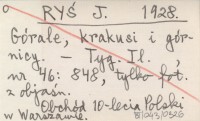 RYŚ J. 1928.
Górale, krakusi i gór-
nicy. — Tyg. Il.,
nr 46: 848, tylko fot.
z objaśn.
Obchód 10-lecia Polski
w Warszawie. 81/043/0326